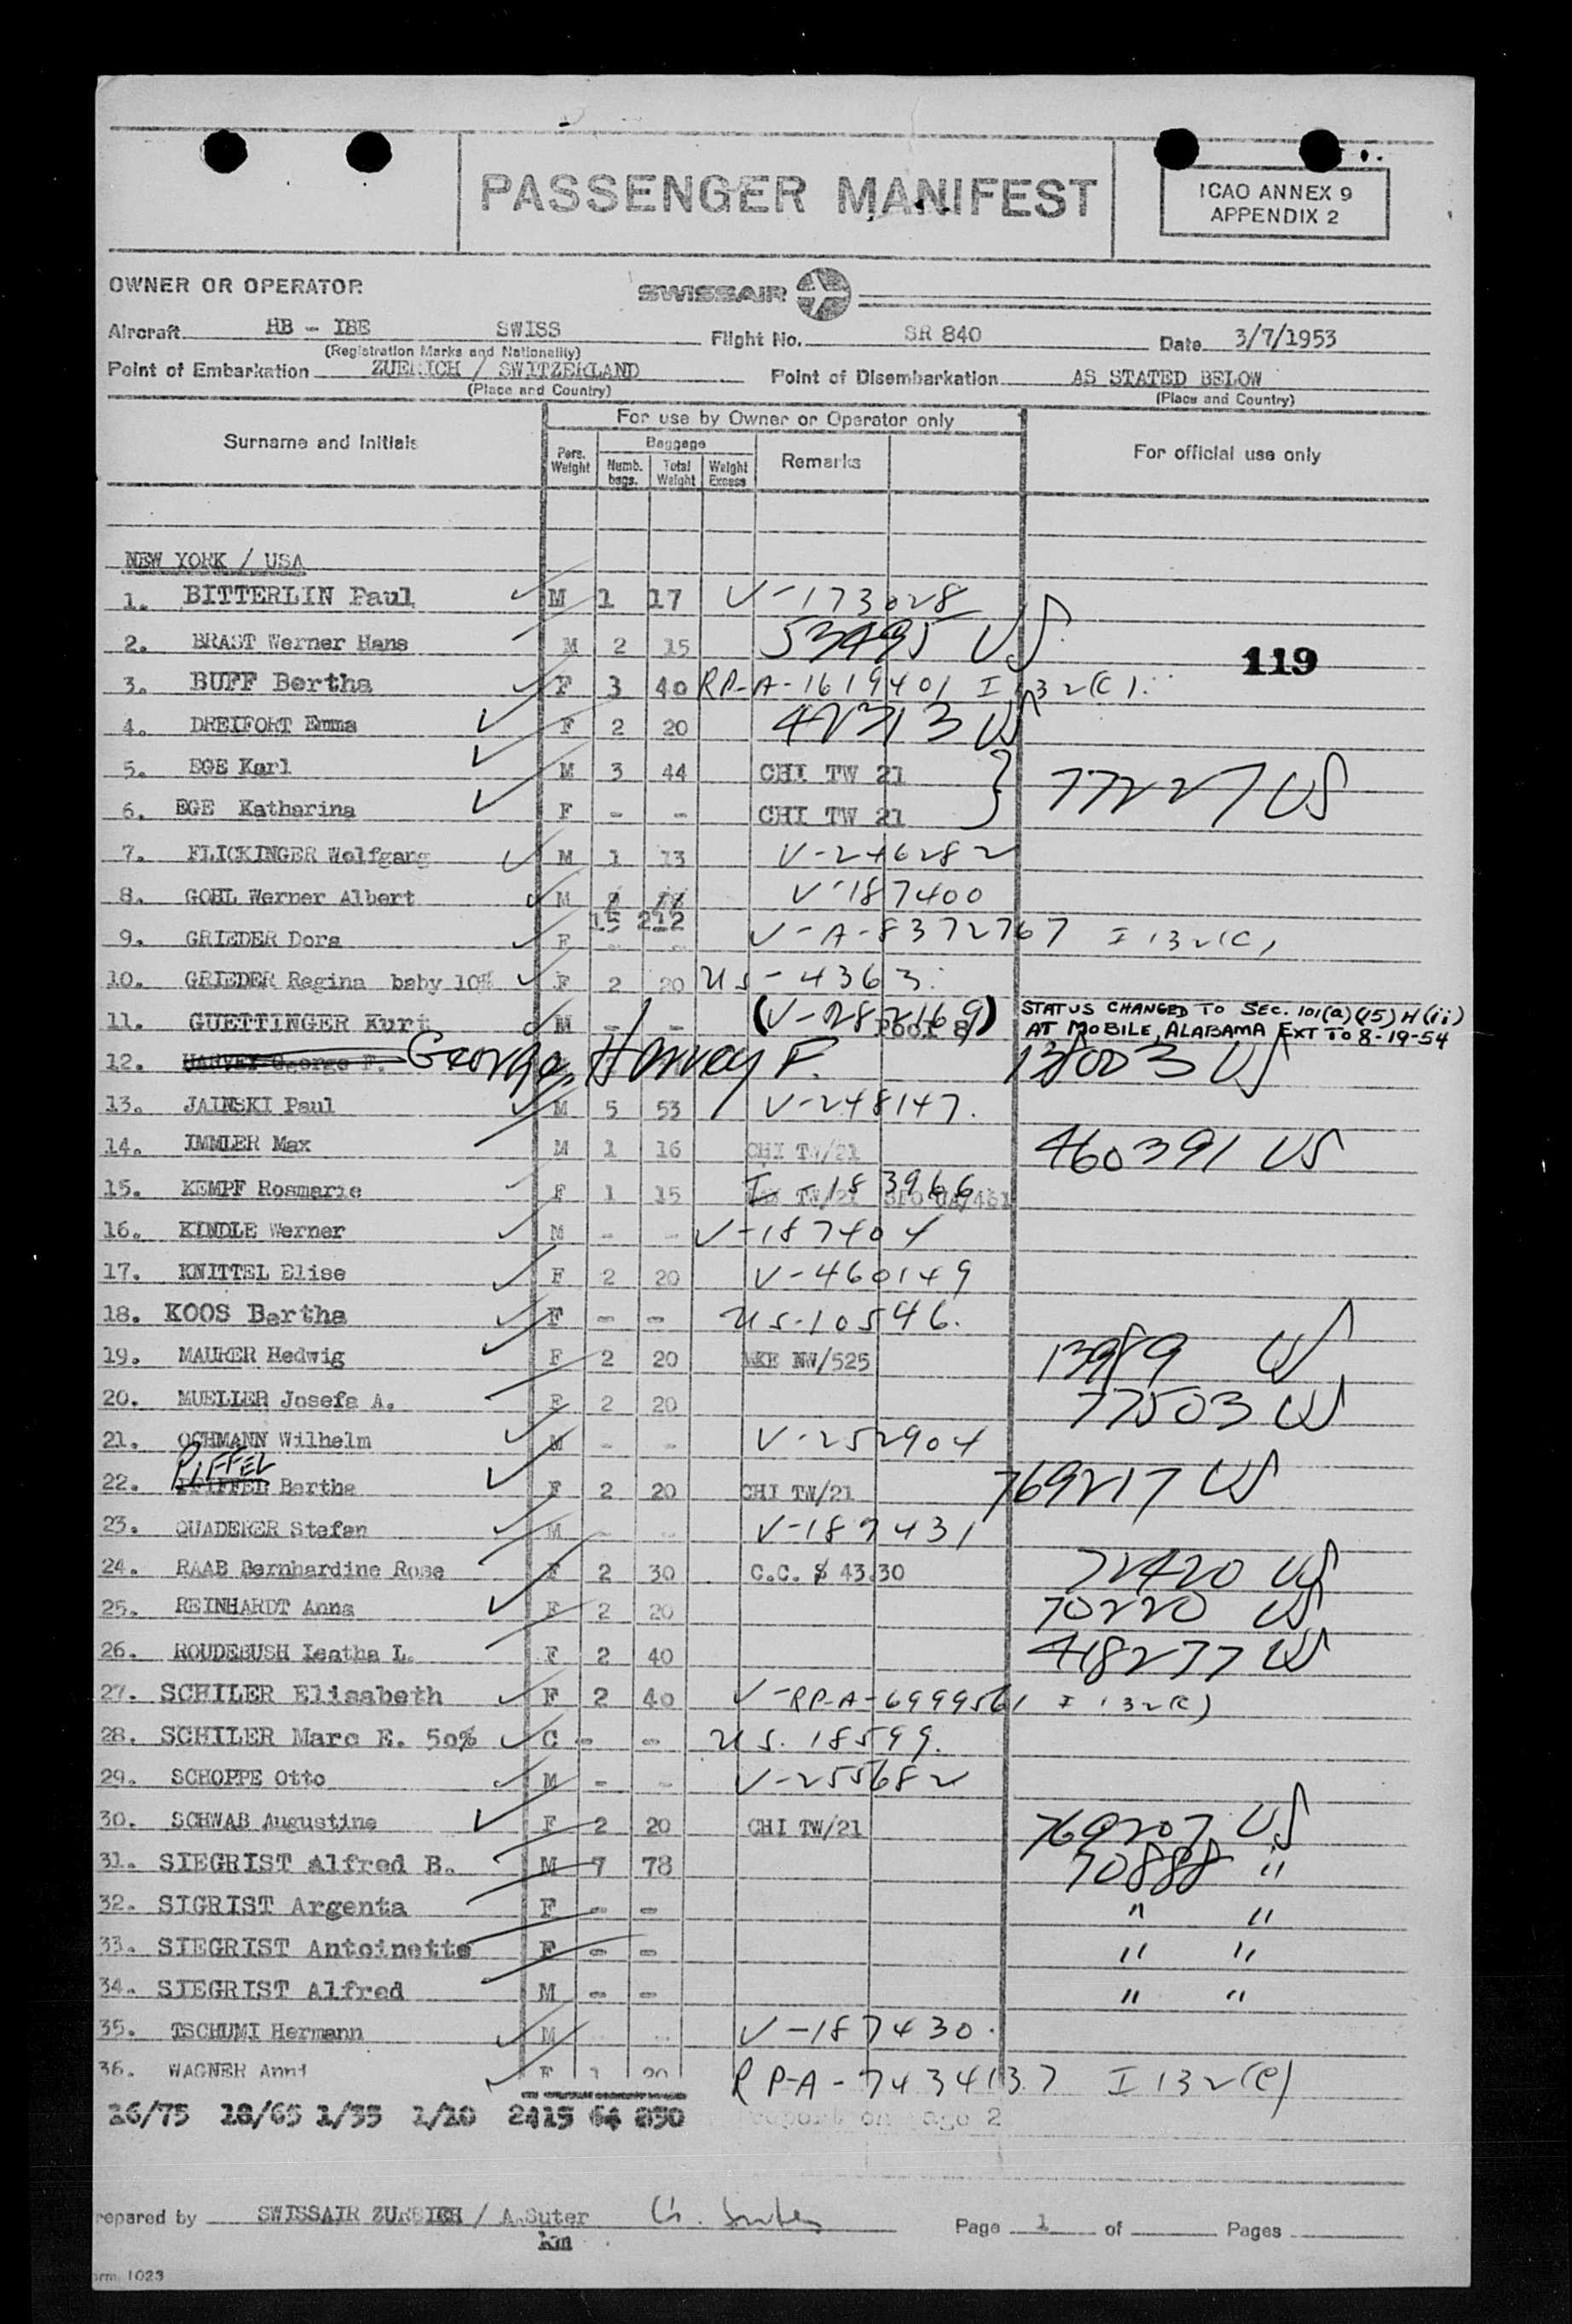 PASSENGER MANIFEST
ICAO ANNEX 9
APPENDIX 2
OWNER OR OPERATOR
SWISSAIR
Aircraft HB - IBE SWISS Flight No. SR 840 Date 3/7/1953
(Registration Marks and Nationality)
Point of Embarkation ZUERICH / SWITZERLAND Point of Disembarkation AS STATED BELOW
(Place and Country) (Place and Country)
For use by Owner or Operator only
Surname and Initials Pers. Weight Baggage Numb. bags. Total Weight Weight Excess Remarks For official use only
NEW YORK / USA
1. BITTERLIN Paul M 1 17 V-173028
2. BRAST Werner Hans M 2 15 53495 US
119
3. BUFF Bertha F 3 40 RP-A-1619401 I 132(C).
4. DREIFORT Emma F 2 20 42313 US
5. EGE Karl M 3 44 CHI TW 21
77227 US
6. EGE Katharina F - - CHI TW 21
7. FLICKINGER Wolfgang M 1 13 V-246282
8. GOHL Werner Albert M V-187400
15 212
9. GRIEDER Dora F - - V-A-8372767 I 132(C)
10. GRIEDER Regina baby 10% F 2 20 US-4363.
11. GUETTINGER Kurt M - - (V-282169) Pool 8 STATUS CHANGED TO SEC. 101(a)(15) H(ii)
AT MOBILE, ALABAMA EXT TO 8-19-54
12. HARVEY George F. George, Harvey F. 138003 US
13. JAINSKI Paul M 5 53 V-248147.
14. IMMLER Max M 1 16 CHI TW/21 460391 US
15. KEMPF Rosmarie F 1 15 I-183966 TW/21 SFO UA/461
16. KINDLE Werner M - - V-187404
17. KNITTEL Elise F 2 20 V-460149
18. KOOS Bertha F - - US-10546.
19. MAURER Hedwig F 2 20 MKE NW/525 13989 US
20. MUELLER Josefa A. F 2 20 77503 US
21. OCHMANN Wilhelm M - - V-252904
PIFFEL
22. Bertha F 2 20 CHI TW/21 769217 US
23. QUADERER Stefan M - - V-187431
24. RAAB Bernhardine Rose F 2 30 C.C. $ 43.30 72420 US
25. REINHARDT Anna F 2 20 70220 US
26. ROUDEBUSH Leatha L. F 2 40 418277 US
27. SCHILER Elisabeth F 2 40 V-RP-A-6999561 I 132(C)
28. SCHILER Marc E. 50% C - - US. 18599.
29. SCHOPPE Otto M - - V-255682
30. SCHWAB Augustine F 2 20 CHI TW/21 769207 US
31. SIEGRIST Alfred B. M 7 78 70888 "
32. SIGRIST Argenta F - - " "
33. SIEGRIST Antoinette F - - " "
34. SIEGRIST Alfred M - - " "
35. TSCHUMI Hermann M - - V-187430.
36. WAGNER Anni F 1 20 RP-A-7434137 I 132(C)
16/75 18/65 1/35 1/10 2415 64 850 report on page 2
repared by SWISSAIR ZUERICH / A.Suter Page 1 of Pages
km
orm 1023